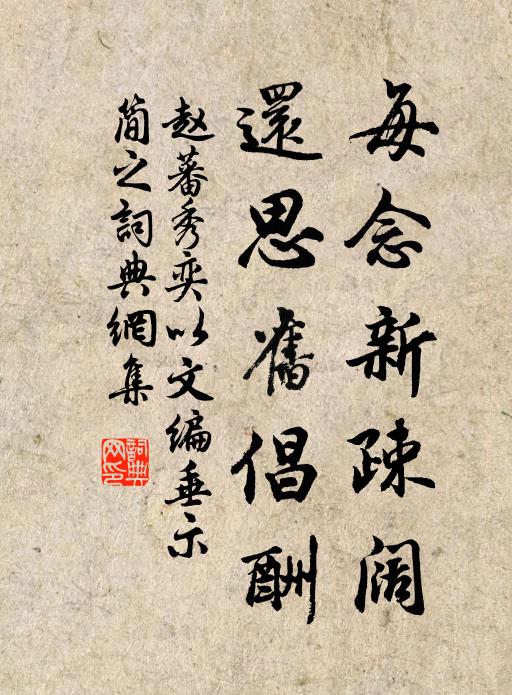 每念新疎阔
還思舊倡酬
赵蕃秀奕以文编垂示
简之詞典網集
詞典网印